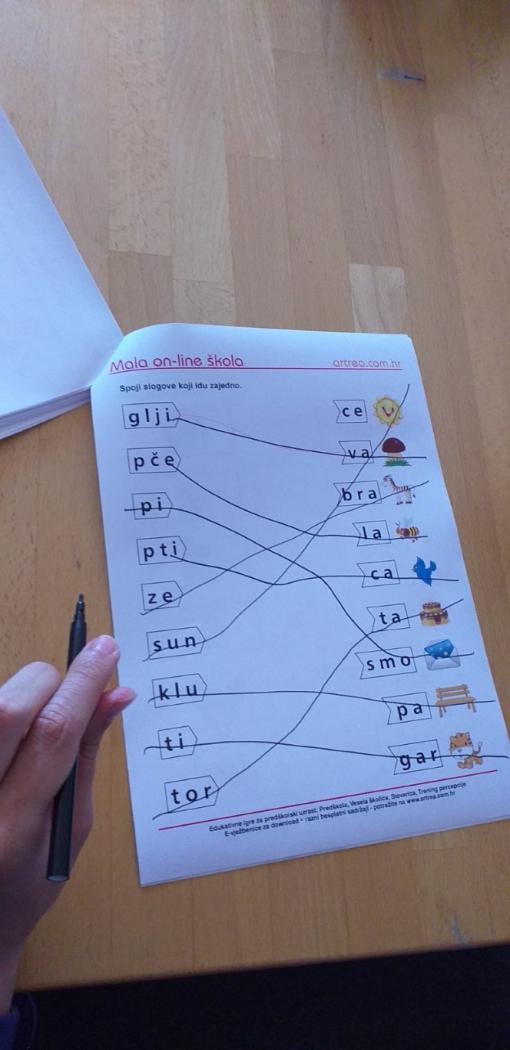 Mala on-line škola artrea.com.hr
Spoji slogove koji idu zajedno.
glji ce
pče va
pi bra
pti la
ze ca
sun ta
klu smo
ti pa
tor gar
Edukativne igre za predškolski uzrast: Predškola, Vesela školica, Slovarica, Trening percepcije
E-vježbenice za download • razni besplatni sadržaji - potražite na www.artrea.com.hr